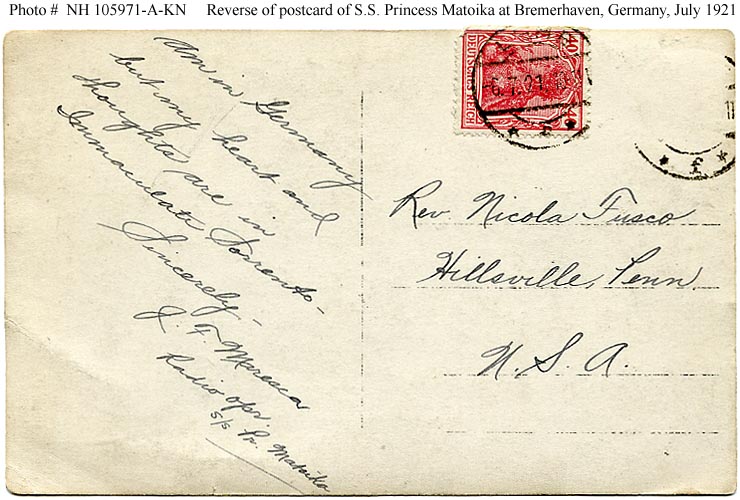 Photo # NH 105971-A-KN Reverse of postcard of S.S. Princess Matoika at Bremerhaven, Germany, July 1921
Am in Germany
but my heart and
thoughts are in
Immaculate Sorrento-
Sincerely-
J. F. Maresca
Radio opr.
S/S Pr. Matoika
40
DEUTSCHES REICH
6.7.21
* f *
* f *
Rev. Nicola Fusco
Hillsville, Penn
U. S. A.